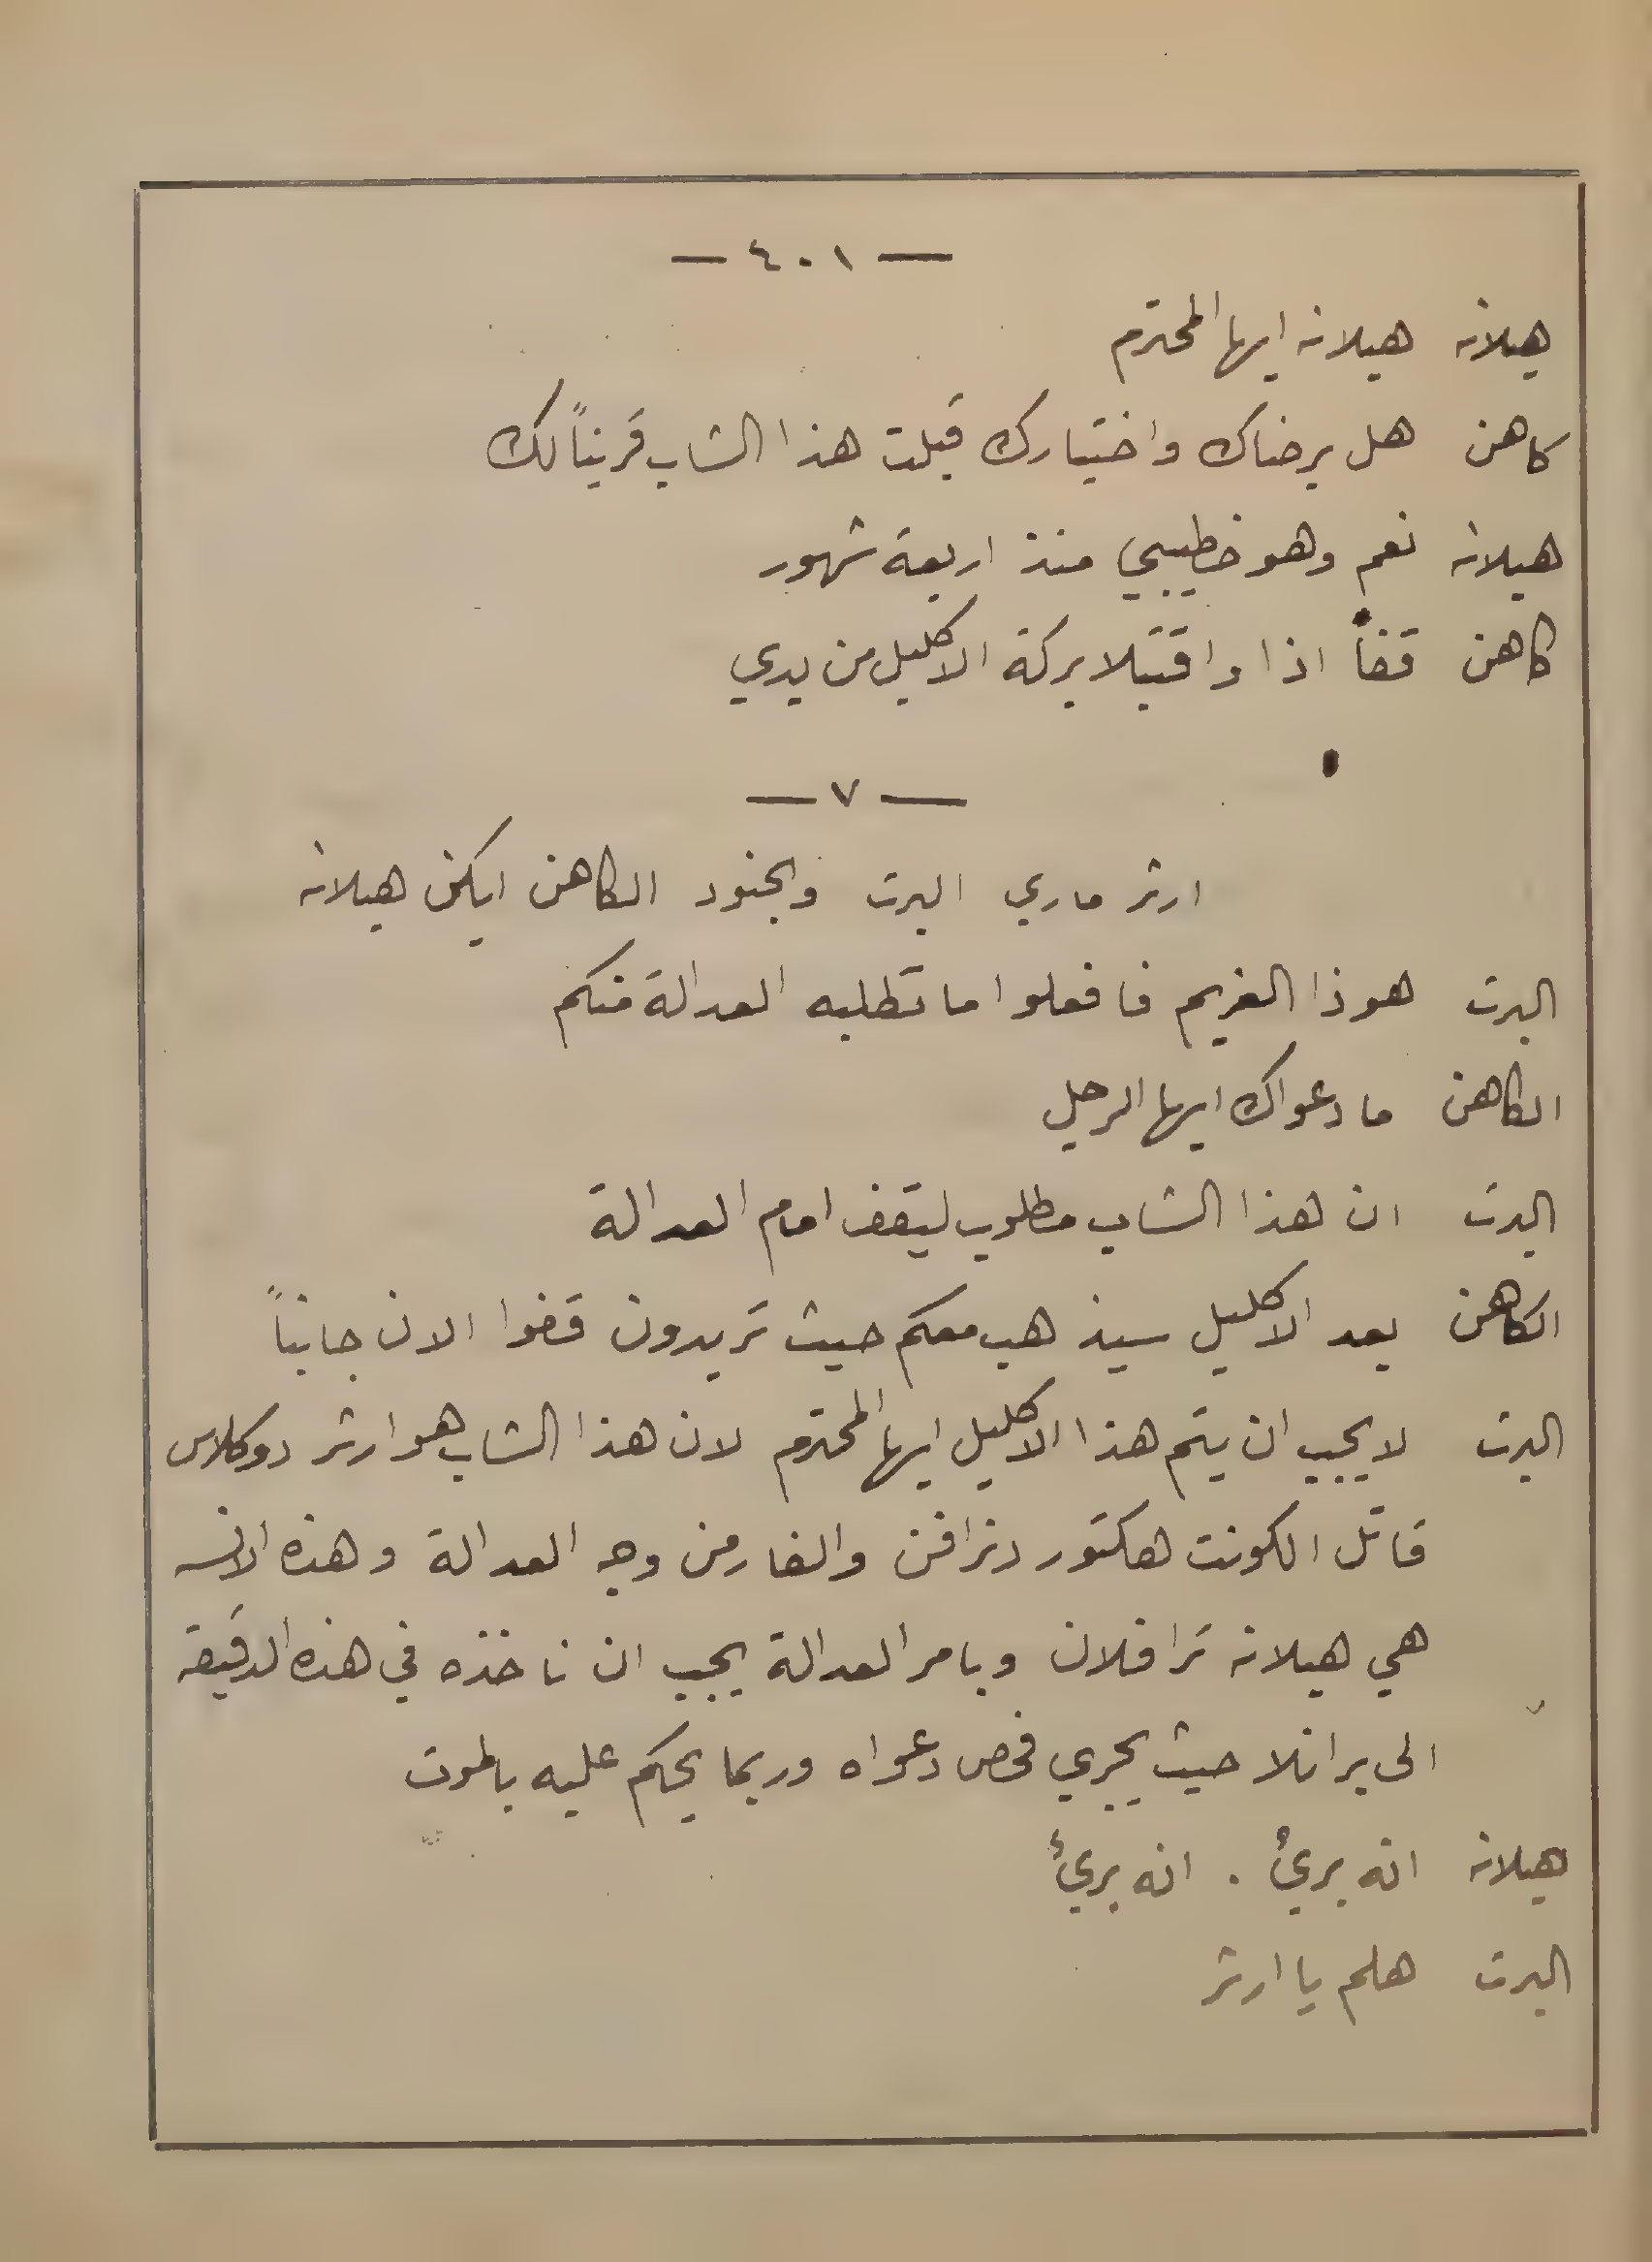 — ٤٠١ —
هيلانه هيلانه ايها المحترم
كاهن هل برضاك واختيارك قبلت هذا الشاب قريناً لك
هيلانه نعم وهو خطيبي منذ اربعة شهور
كاهن قفا اذا واقتبلا بركة الاكليل من يدي
— ٧ —
ارثر ماري البرت والجنود الكاهن ايكن هيلانه
البرت هوذا الغريم فافعلوا ما تطلبه العدالة منكم
الكاهن ما دعواك ايها الرجل
البرت ان هذا الشاب مطلوب ليقف امام العدالة
الكاهن بعد الاكليل سيذهب معكم حيث تريدون قفوا الان جانباً
البرت لا يجب ان يتم هذا الاكليل ايها المحترم لان هذا الشاب هو ارثر دوكلاس
قاتل الكونت هكتور دنرافن والفار من وجه العدالة وهذه الانسه
هي هيلانه ترافلان وبامر العدالة يجب ان ناخذه في هذه الدقيقه
الى برانلا حيث يجري فحص دعواه وربما يحكم عليه بالموت
هيلانه انه بريءٌ . انه بريءٌ
البرت هلم يا ارثر